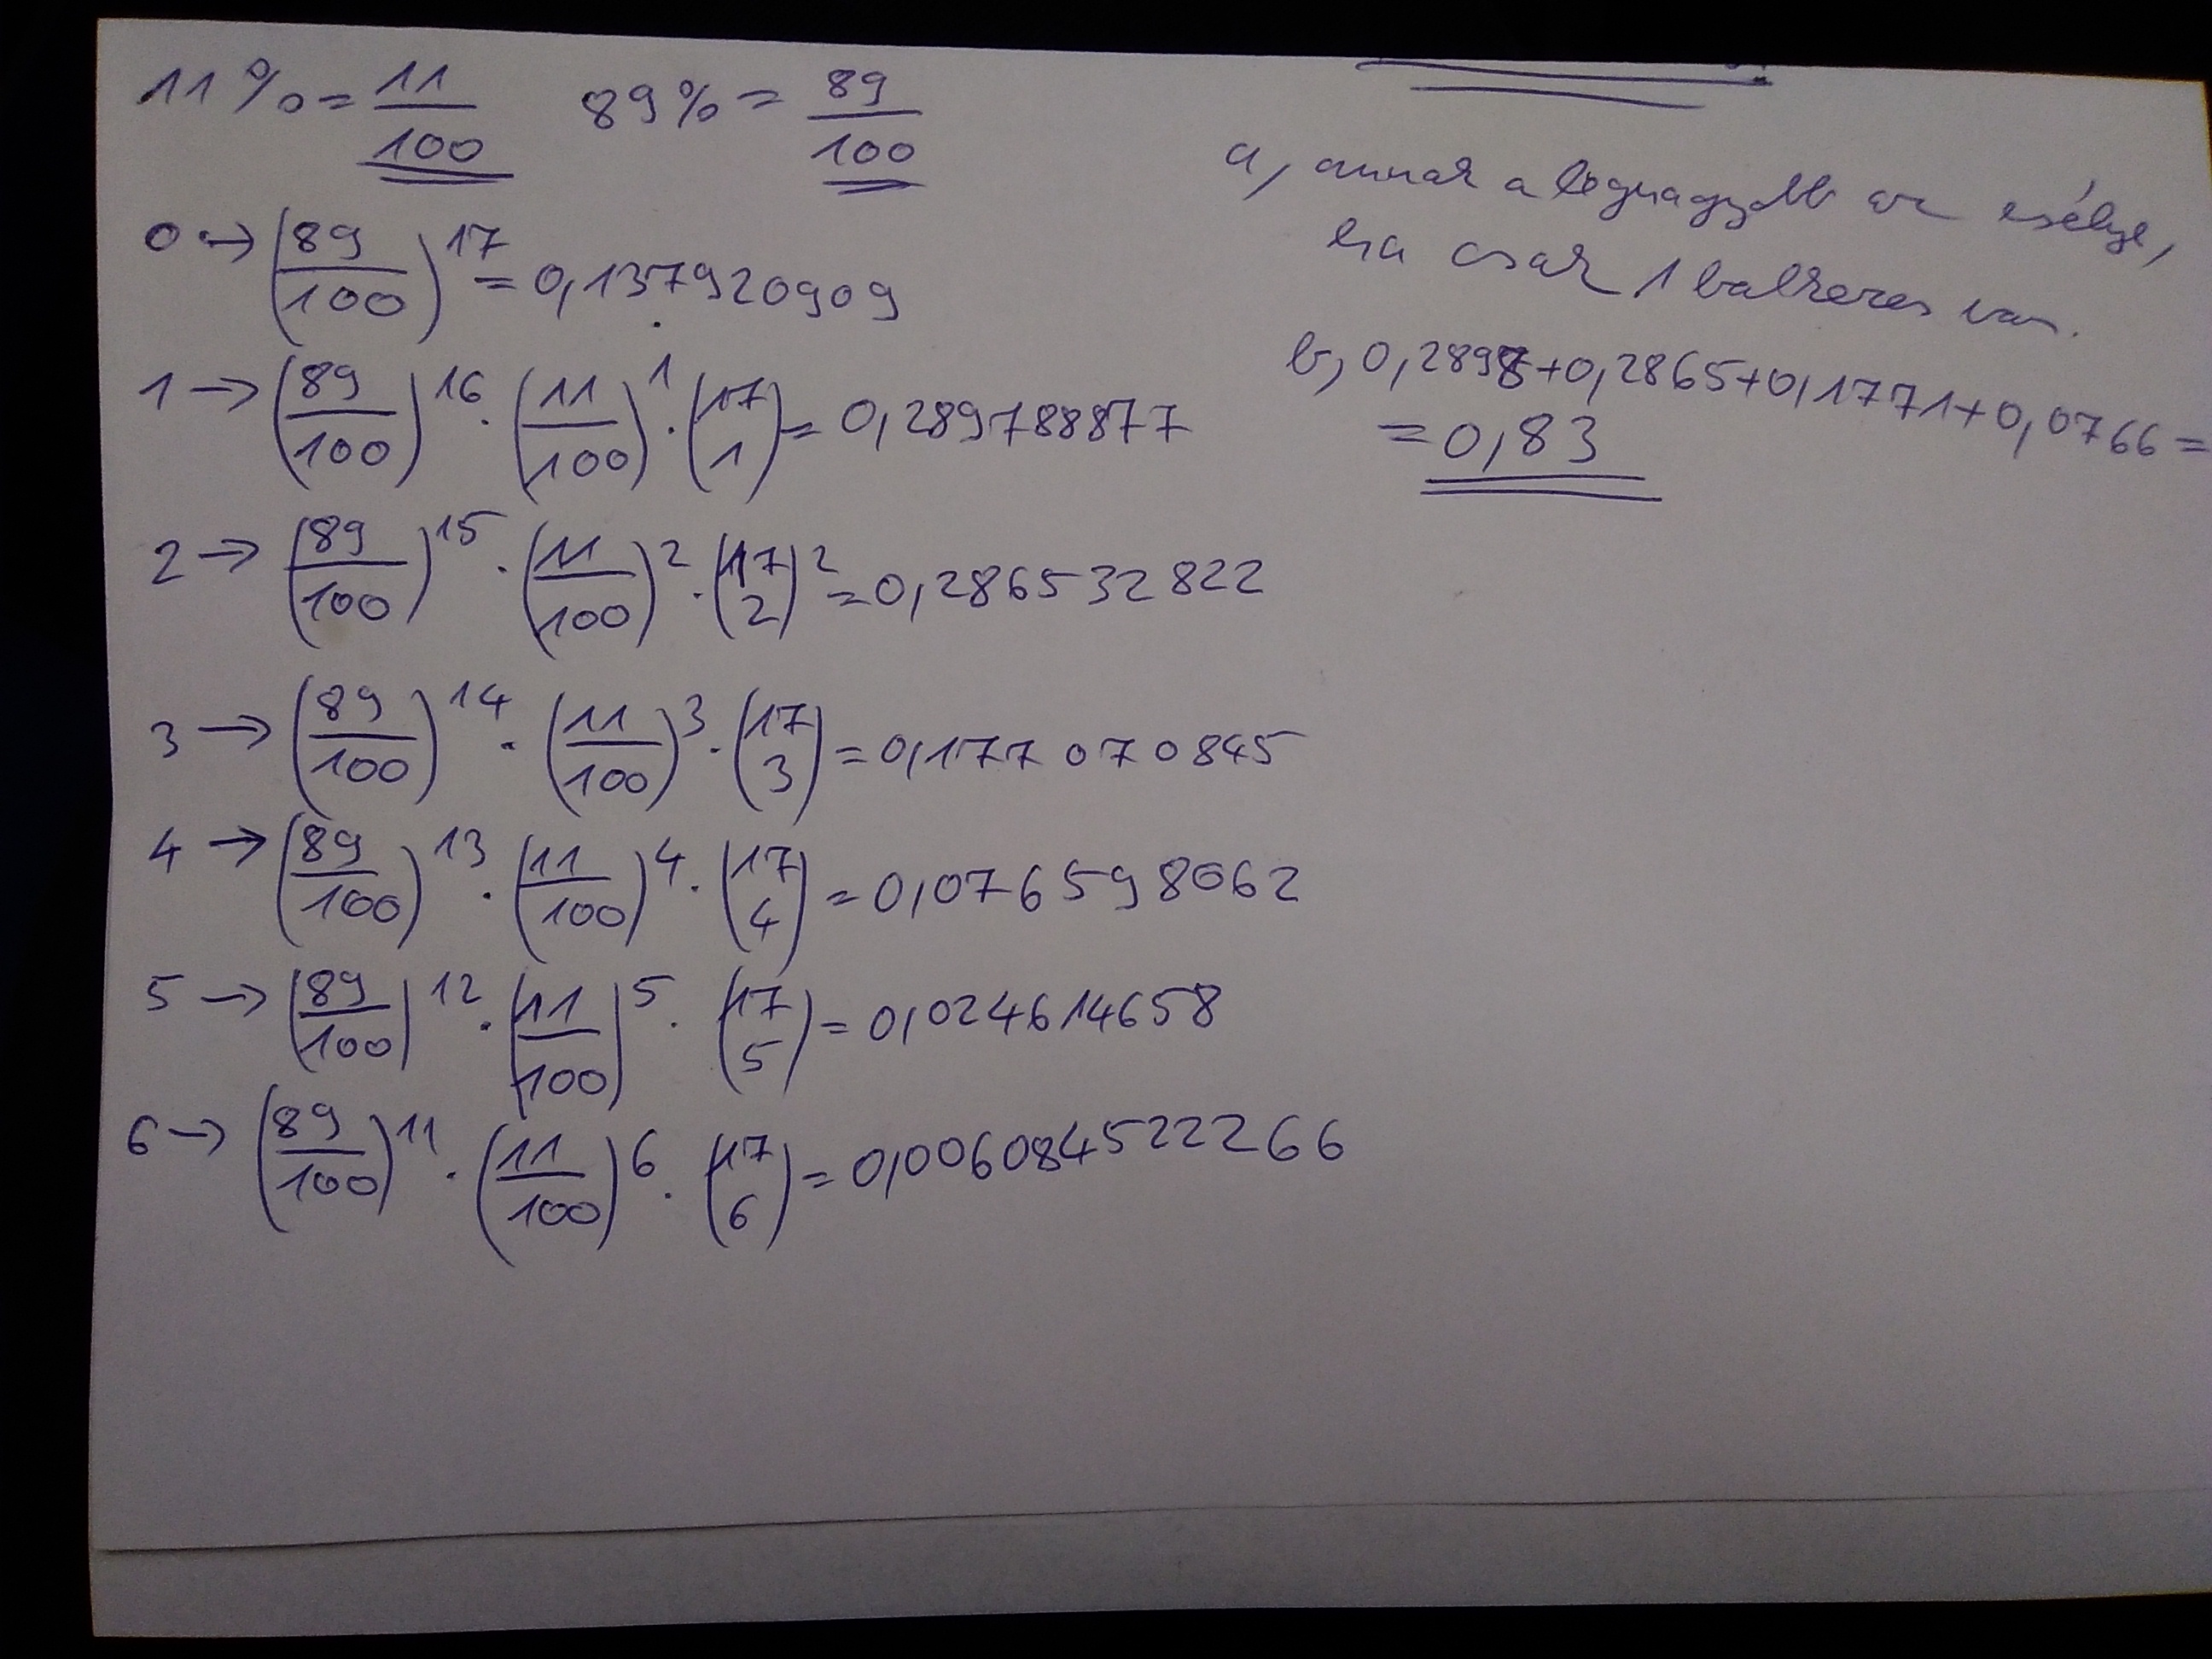 11% = 11/100   89% = 89/100
0 → (89/100)^17 = 0,137920909
1 → (89/100)^16 · (11/100)^1 · (17 1) = 0,289788877
2 → (89/100)^15 · (11/100)^2 · (17 2)^2 = 0,286532822
3 → (89/100)^14 · (11/100)^3 · (17 3) = 0,177070845
4 → (89/100)^13 · (11/100)^4 · (17 4) = 0,076598062
5 → (89/100)^12 · (11/100)^5 · (17 5) = 0,024614658
6 → (89/100)^11 · (11/100)^6 · (17 6) = 0,006084522266
a, annak a legnagyobb az esélye,
ha csak 1 balkezes van.
b, 0,2898+0,2865+0,1771+0,0766=
=0,83